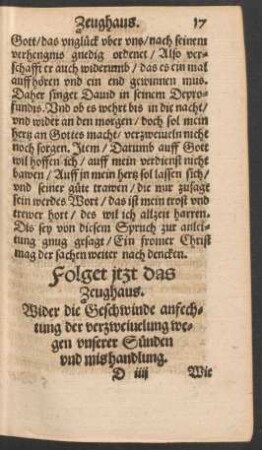 Zeughaus. 17
Gott/das vnglück vber vns/nach seinem
verhengnis gnedig ordenet/Also ver-
schafft er auch widerumb/das es ein mal
auffhören vnd ein end gewinnen mus.
Daher singet Dauid in seinem Depro-
fundis. Vnd ob es wehrt bis in die nacht/
vnd wider an den morgen/doch sol mein
hertz an Gottes macht/verzweiueln nicht
noch sorgen. Item/Darumb auff Gott
wil hoffen ich/auff mein verdienst nicht
bawen/Auff in mein hertz sol lassen sich/
vnd seiner güte trawen/die mir zusagt
sein werdes Wort/das ist mein trost vnd
trewer hort/des wil ich allzeit harren.
Dis sey von diesem Spruch zur anlei-
tung gnug gesagt/Ein fromer Christ
mag der sachen weiter nach dencken.
Folget jtzt das
Zeughaus.
Wider die Geschwinde anfech-
tung der verzweiuelung we-
gen vnserer Sünden
vnd mishandlung.
D iiij Wie